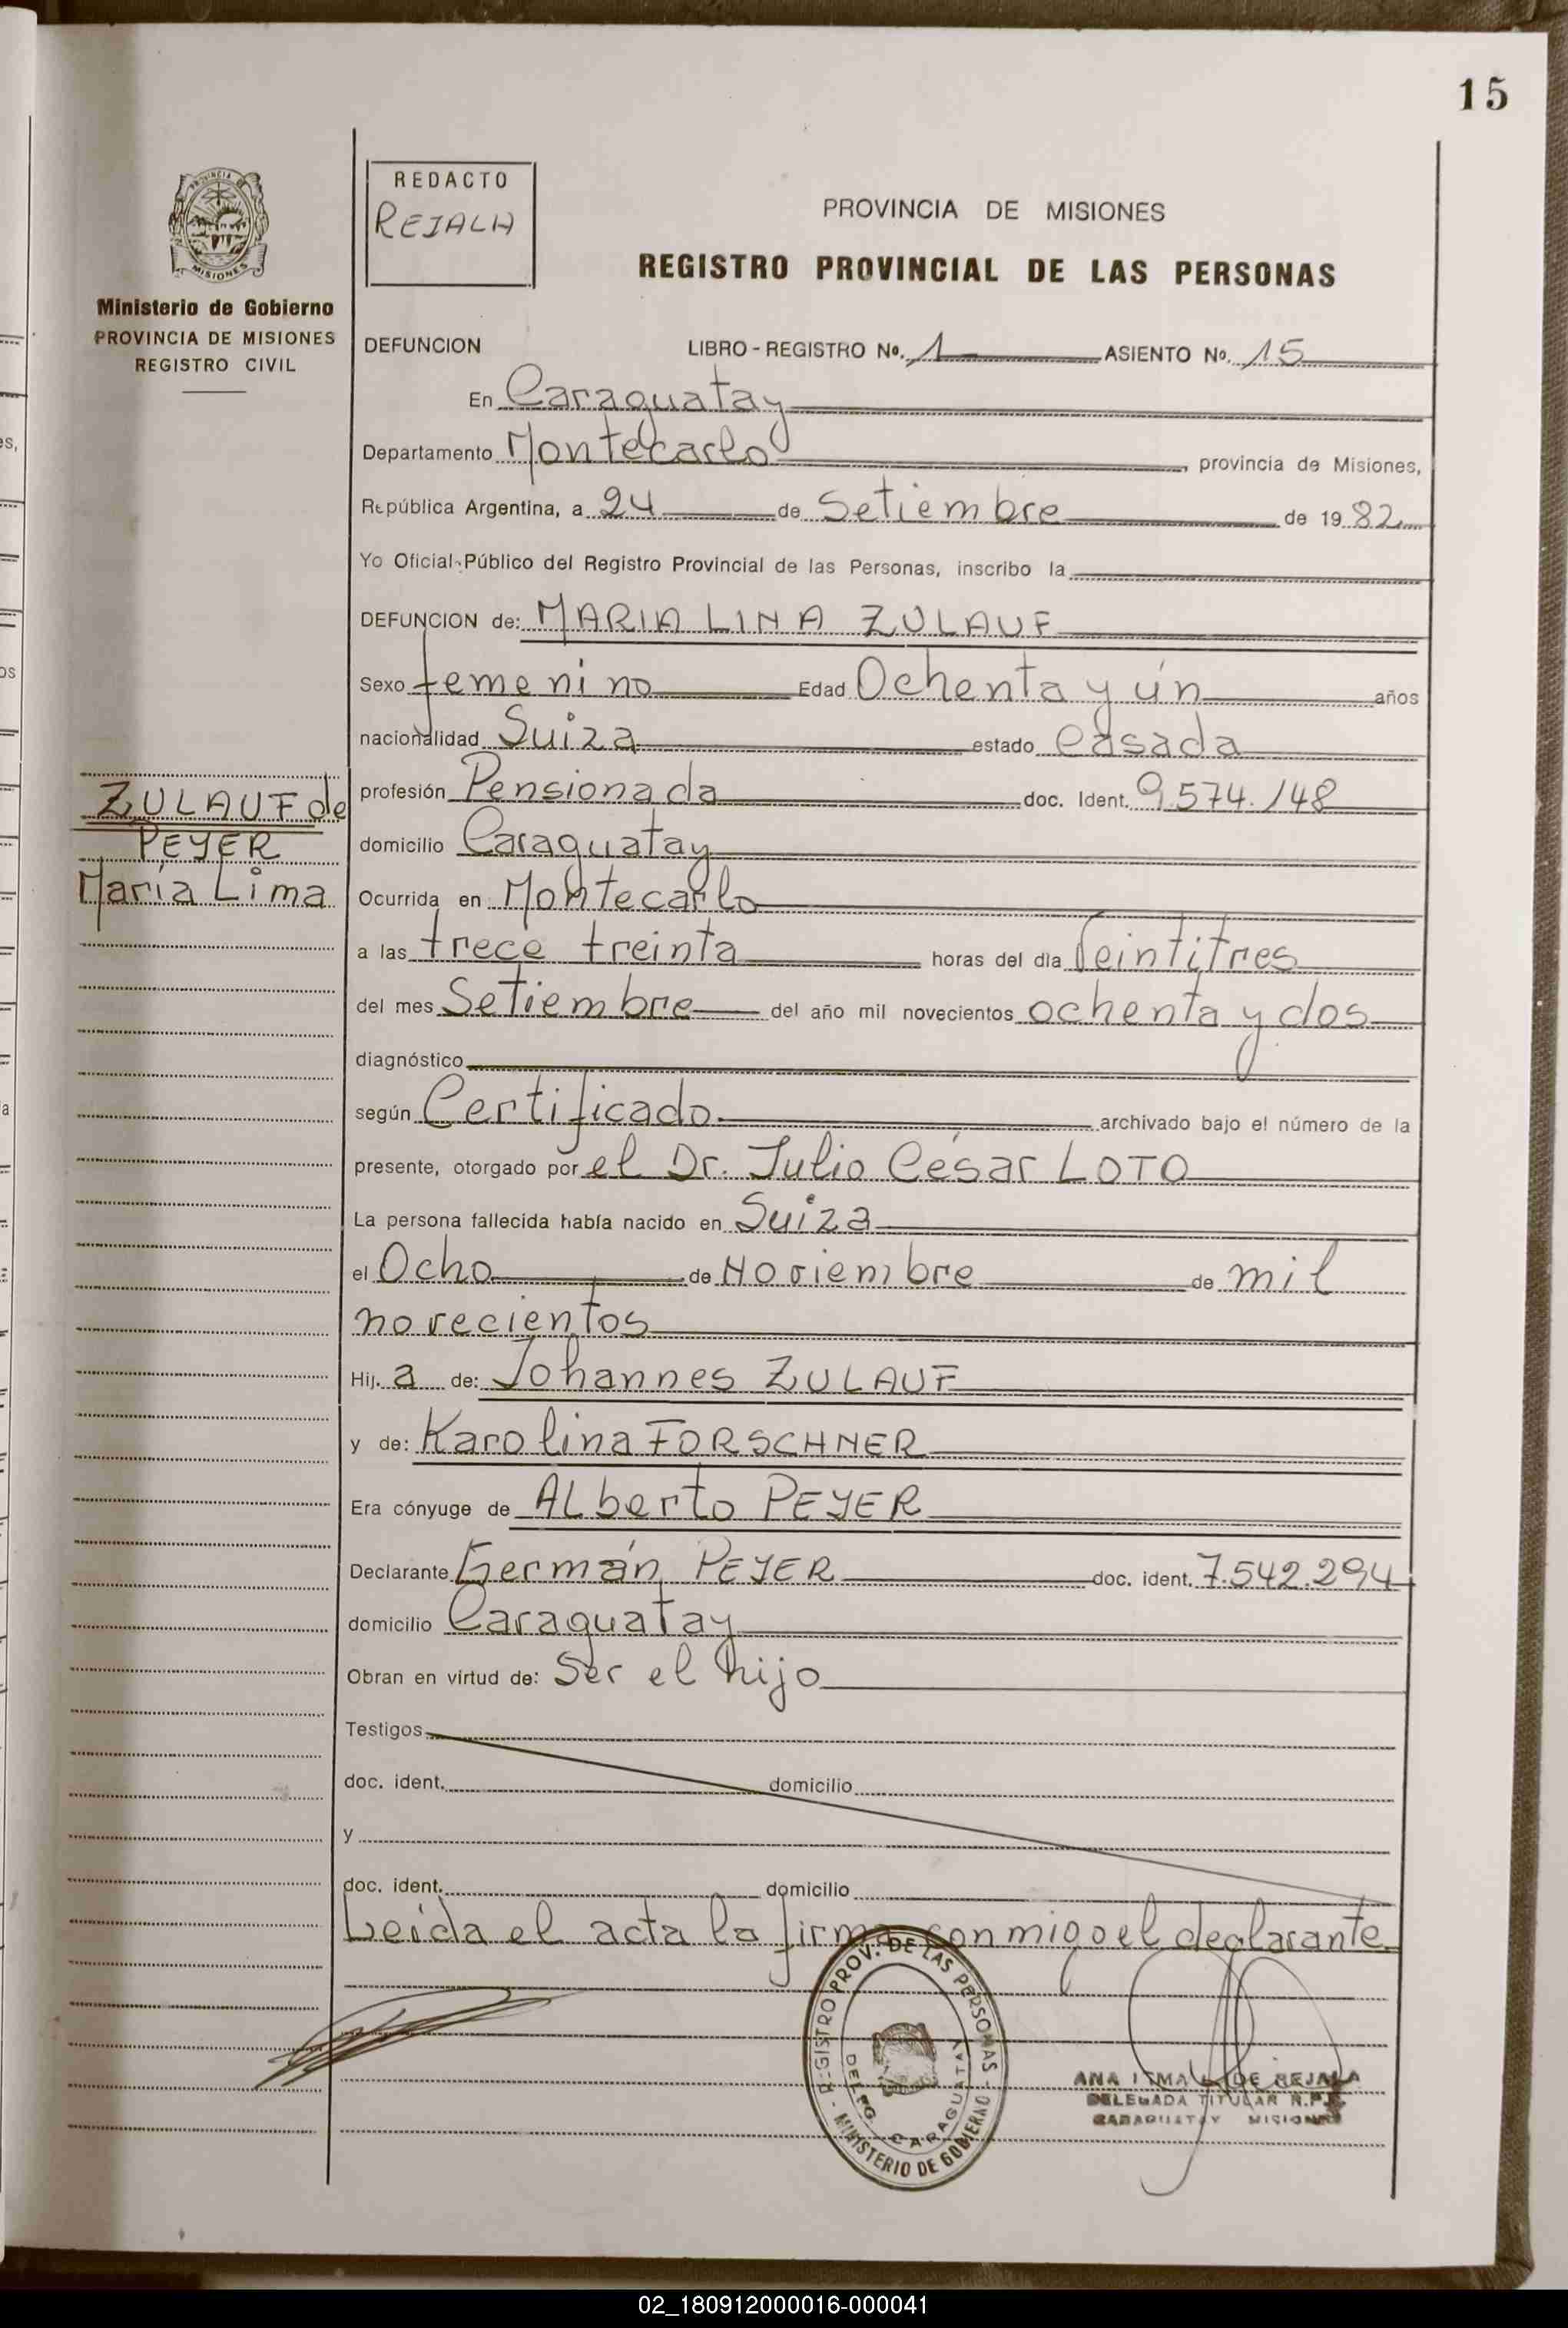 15
REDACTO
REJALA
PROVINCIA DE MISIONES
REGISTRO PROVINCIAL DE LAS PERSONAS
Ministerio de Gobierno
PROVINCIA DE MISIONES
REGISTRO CIVIL
DEFUNCION LIBRO - REGISTRO No. 1 ASIENTO No. 15
En Caraguatay
Departamento Montecarlo, provincia de Misiones,
República Argentina, a 24 de Setiembre de 1982
Yo Oficial Público del Registro Provincial de las Personas, inscribo la
DEFUNCION de: MARIA LINA ZULAUF
Sexo femenino Edad Ochenta y ún años
nacionalidad Suiza estado Casada
ZULAUF de
PEYER
María Lima
profesión Pensionada doc. Ident. 9.574.148
domicilio Caraguatay
Ocurrida en Montecarlo
a las trece treinta horas del día Veintitres
del mes Setiembre del año mil novecientos ochenta y dos
diagnóstico
según Certificado archivado bajo el número de la
presente, otorgado por el Dr. Julio César LOTO
La persona fallecida había nacido en Suiza
el Ocho de Noviembre de mil
novecientos
Hij. a de: Johannes ZULAUF
y de: Karolina FORSCHNER
Era cónyuge de ALberto PEYER
Declarante Germán PEYER doc. ident. 7.542.294
domicilio Caraguatay
Obran en virtud de: Ser el hijo
Testigos
doc. ident. domicilio
y
doc. ident. domicilio
Leida el acta la firma conmigo el declarante
REGISTRO PROV. DE LAS PERSONAS - MINISTERIO DE GOBIERNO -
DELEG. CARAGUATAY
ANA IRMA DE REJALA
DELEGADA TITULAR R.P.P.
CARAGUATAY MISIONES
02_180912000016-000041